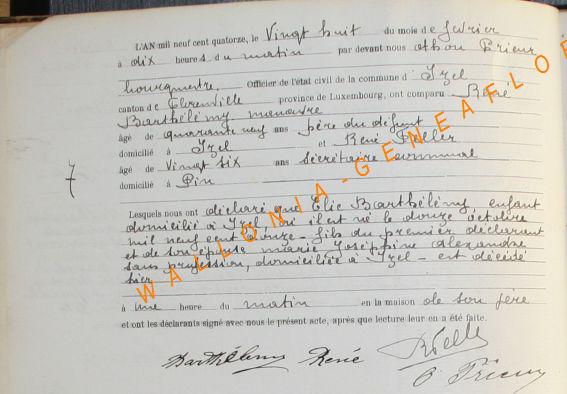 L'AN mil neuf cent quatorze, le Vingt huit du mois de fevrier
à dix heures du matin par devant nous Athon Prieur
bourgmestre, Officier de l'état civil de la commune d'Izel
canton de Florenville province de Luxembourg, ont comparu René
Barthélémy manœuvre
âgé de quarante neuf ans père du défunt
domicilié à Izel et René Peller
âgé de Vingt six ans secrétaire communal
domicilié à Pin
7
Lesquels nous ont déclaré que Elie Barthélémy enfant
domicilié à Izel, où il est né le douze octobre
mil neuf cent douze - fils du premier déclarant
et de son épouse marie Joséphine Alexandre
sans profession, domiciliée à Izel - est décédé
hier
à une heure du matin en la maison de son père
et ont les déclarants signé avec nous le présent acte, après que lecture leur en a été faite.
Barthélemy René
O Prieur
WALLONIA-GENEAFLO